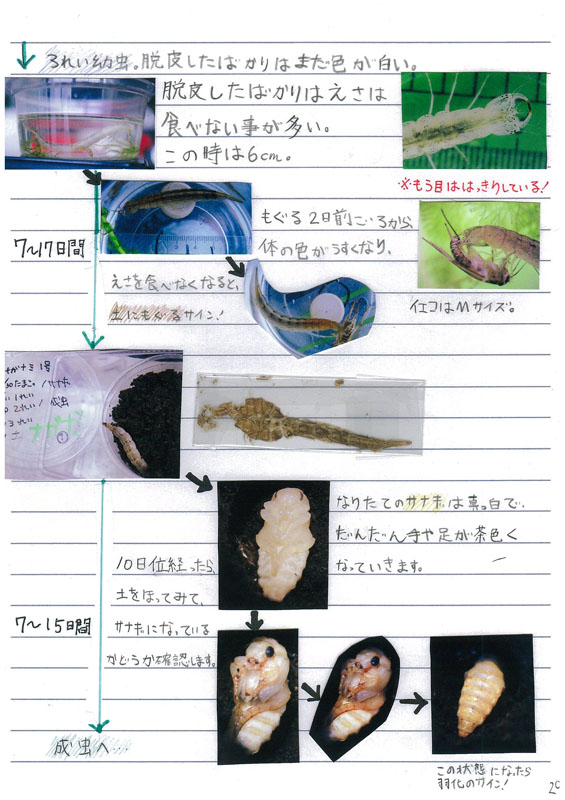 3れい幼虫。脱皮したばかりはまだ色が白い。
脱皮したばかりはえさは
食べない事が多い。
この時は6cm。
※もう目ははっきりしている!
7〜17日間
もぐる2日前ごろから、
体の色がうすくなり、
えさを食べなくなると、
土にもぐるサイン!
イエコはMサイズ。
なりたてのサナギは真っ白で、
だんだん手や足が茶色く
なっていきます。
10日位経ったら、
土をほってみて、
サナギになっている
かどうか確認します。
7〜15日間
成虫へ
この状態になったら
羽化のサイン!